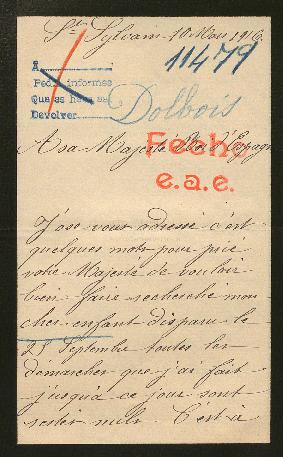 St Sylvain 10 Mars 1916
11479
A
Ped. informes
Que se
Devolver
Dolbois
A sa Majesté Roi d'Espagne
Fecho
e.a.e.
J'ose vous adressé c'est
quelques mots pour prié
votre Majesté de vouloir
bien faire recherché mon
cher enfant disparu le
25 Septembre toutes les
démarches que j'ai fait
jusqu'à ce jour sont
restér nuls. C'est à